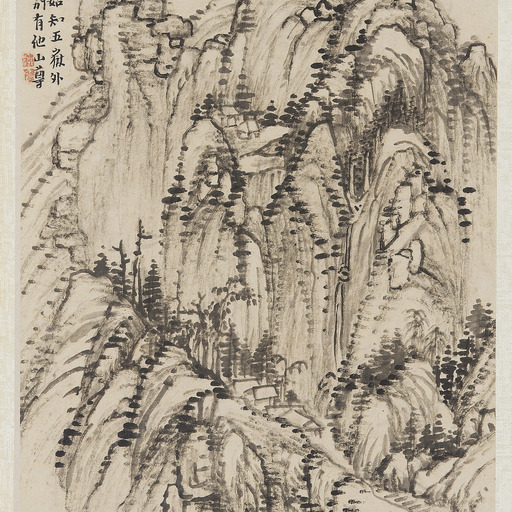 始知五嶽外
別有他山尊